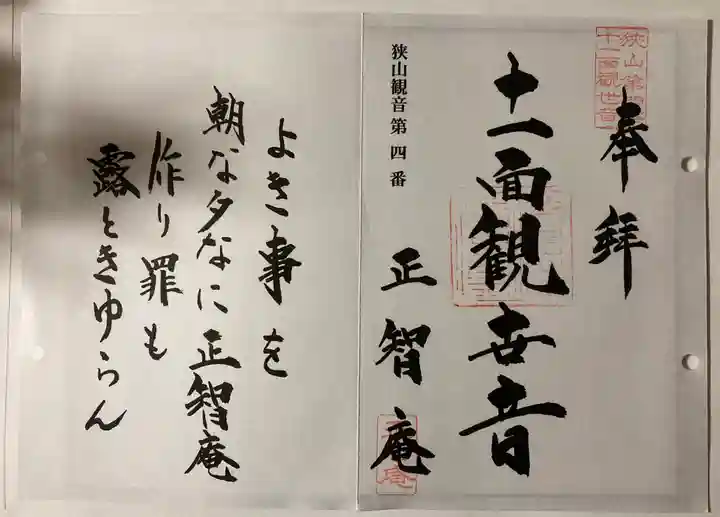 奉拝
狭山第四
十一面観世音
十一面観世音
狭山観音第四番
正智庵
よき事を
朝な夕なに正智庵
作り罪も
露ときゆらん